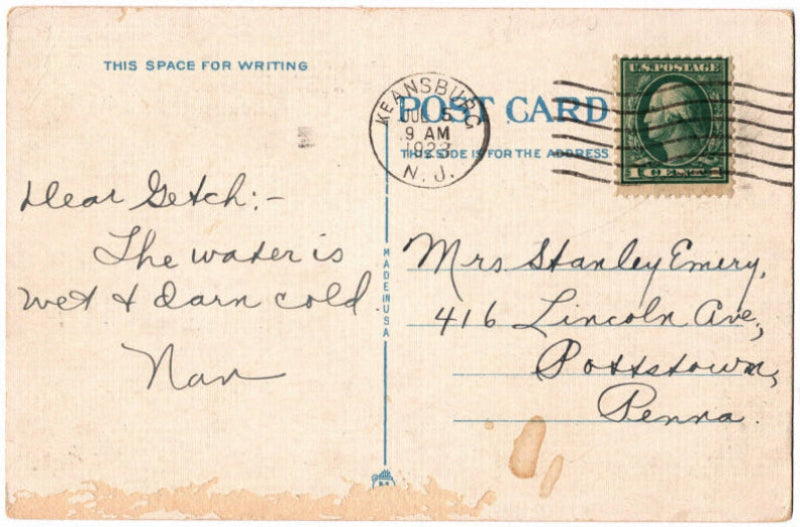 THIS SPACE FOR WRITING
POST CARD
THIS SIDE IS FOR THE ADDRESS
KEANSBURG
JUL 5
9 AM
1923
N. J.
U.S. POSTAGE
1 CENT 1
Dear Getch:-
The water is
wet & darn cold.
Nan
MADE IN USA
Mrs Stanley Emery,
416 Lincoln Ave,
Pottstown,
Penna.